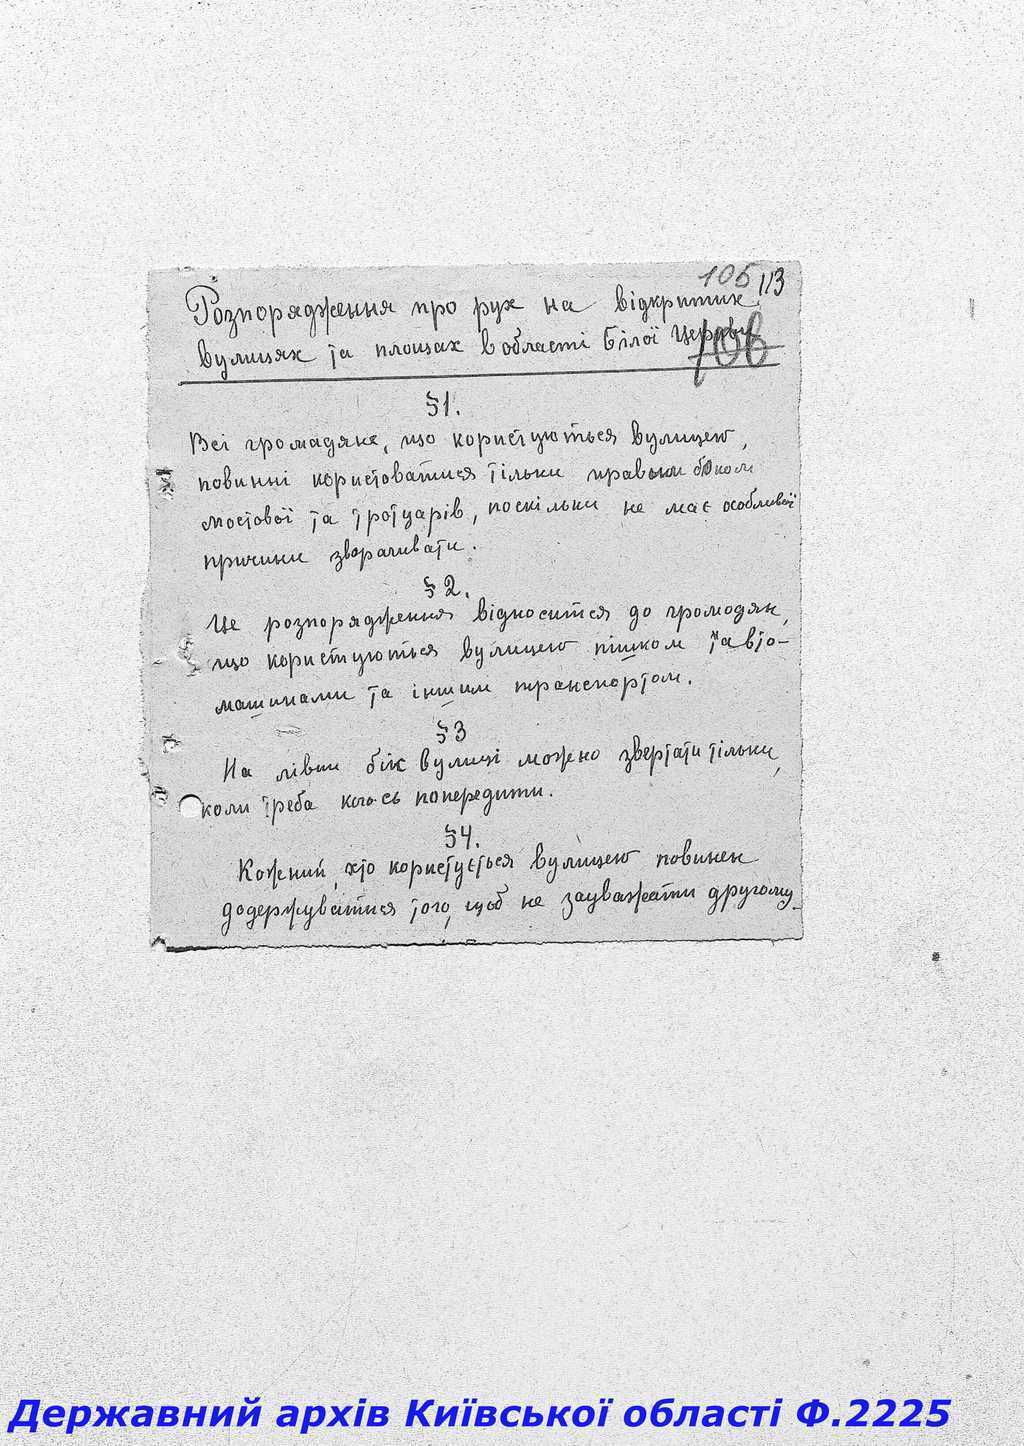 105 113
Розпорядження про рух на відкритих
вулицях та площах в області Білої Церкви
106
§1.
Всі громадяне, що користуються вулицею,
повинні користоватися тільки правим боком
мостової та тротуарів, поскільки не має особливої
причини зворачивати.
§2.
Це розпорядження відноситься до громодян,
що користуються вулицею пішком та авто-
машинами та іншим транспортом.
§3
На лівий бік вулиці можно звертати тільки,
коли треба когось попередити.
§4.
Кожний, хто користується вулицею повинен
додержуватися того, щоб не зауважати другому
Державний архів Київської області Ф.2225